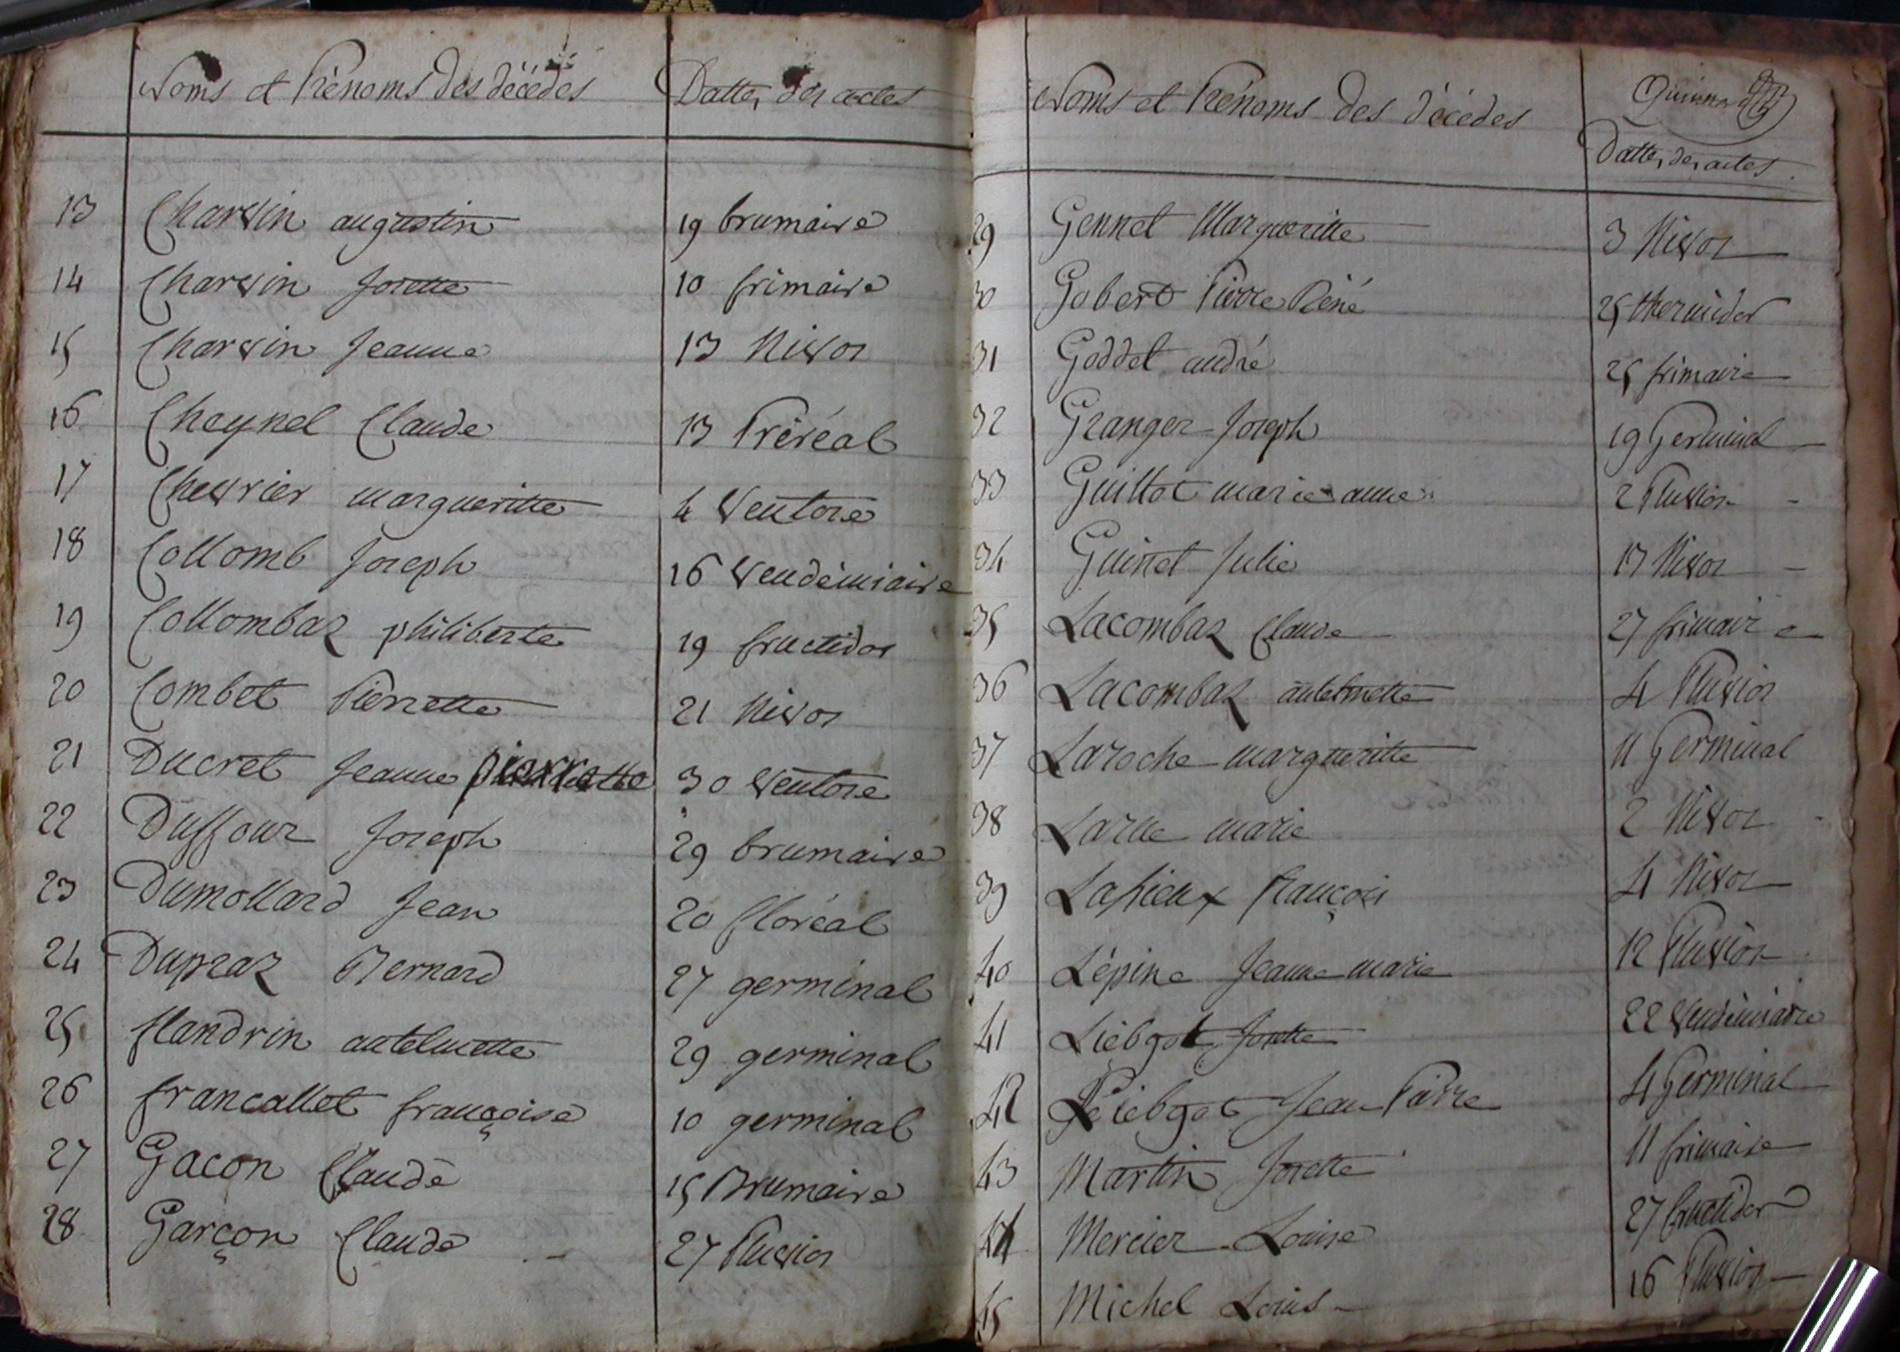 Noms et Prénoms des décédés Dattes des actes
13 Charvin augustin 19 brumaire
14 Charvin Josette 10 frimaire
15 Charvin Jeanne 13 Nivos
16 Cheynel Claude 13 Préréal
17 Chevrier margueritte 4 Ventose
18 Collomb Joseph 16 Vendémiaire
19 Collombaz philiberte 19 fructidor
20 Combet Pierrette 21 Nivos
21 Ducret Jeanne pierrette 30 Ventose
22 Duffour Joseph 29 brumaire
23 Dumollard Jean 20 floréal
24 Dupraz Bernard 27 germinal
25 flandrin antelmette 29 germinal
26 francallet françoise 10 germinal
27 Gacon Claude 15 Brumaire
28 Garçon Claude 27 Pluvios
Noms et Prénoms des décédés Dattes des actes
29 Gennet Margueritte 3 Nivos
30 Gobert Pierre Réné 25 thermidor
31 Goddet andré 25 frimaire
32 Granger Joseph 19 Germinal
33 Guillot marie anne 2 Pluvios
34 Guinet Julie 17 Nivos
35 Lacombaz Claude 27 frimaire
36 Lacombaz antelmette 4 Pluvios
37 Laroche margueritte 11 Germinal
38 Larue marie 2 Nivos
39 Lapieux François 4 Nivos
40 Lépine Jeanne marie 12 Pluvios
41 Liébgot Josette 22 Vendémiaire
42 Liebgot Jean Pierre 4 Germinal
43 Martin Josette 11 frimaire
44 Mercier Louise 27 fructidor
45 Michel Louis 16 Pluvios